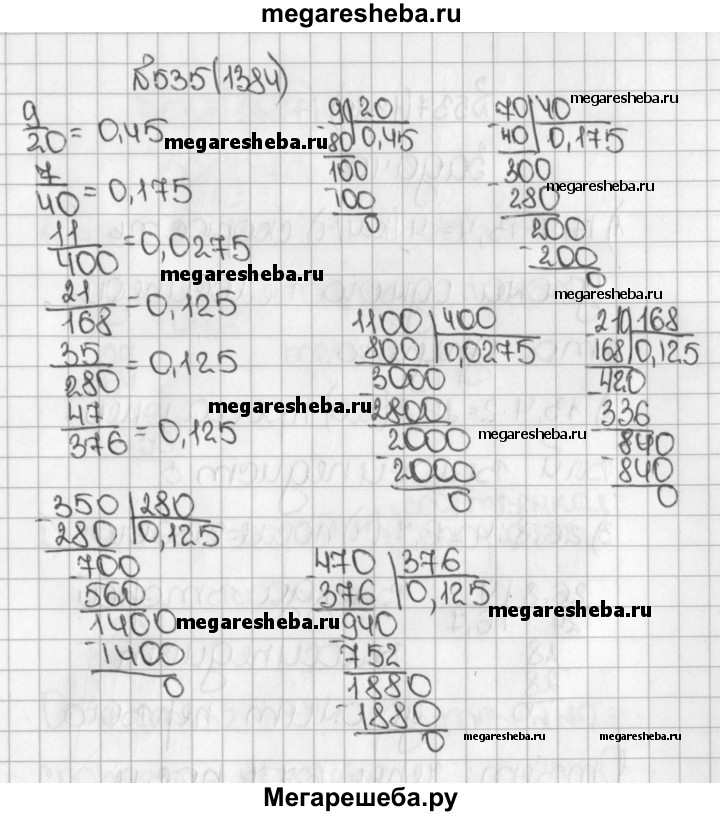 megaresheba.ru
№535(1384)
9/20 = 0,45
7/40 = 0,175
11/400 = 0,0275
21/168 = 0,125
35/280 = 0,125
47/376 = 0,125
megaresheba.ru
megaresheba.ru
megaresheba.ru
90 20
- 80 0,45
100
- 100
0
70 40
- 40 0,175
300
- 280
200
- 200
0
megaresheba.ru
megaresheba.ru
megaresheba.ru
1100 400
- 800 0,0275
3000
- 2800
2000
- 2000
0
210 168
- 168 0,125
420
- 336
840
- 840
0
megaresheba.ru
350 280
- 280 0,125
700
- 560
1400
- 1400
0
megaresheba.ru
470 376
- 376 0,125
940
- 752
1880
- 1880
0
megaresheba.ru
megaresheba.ru megaresheba.ru
Мегарешеба.ру